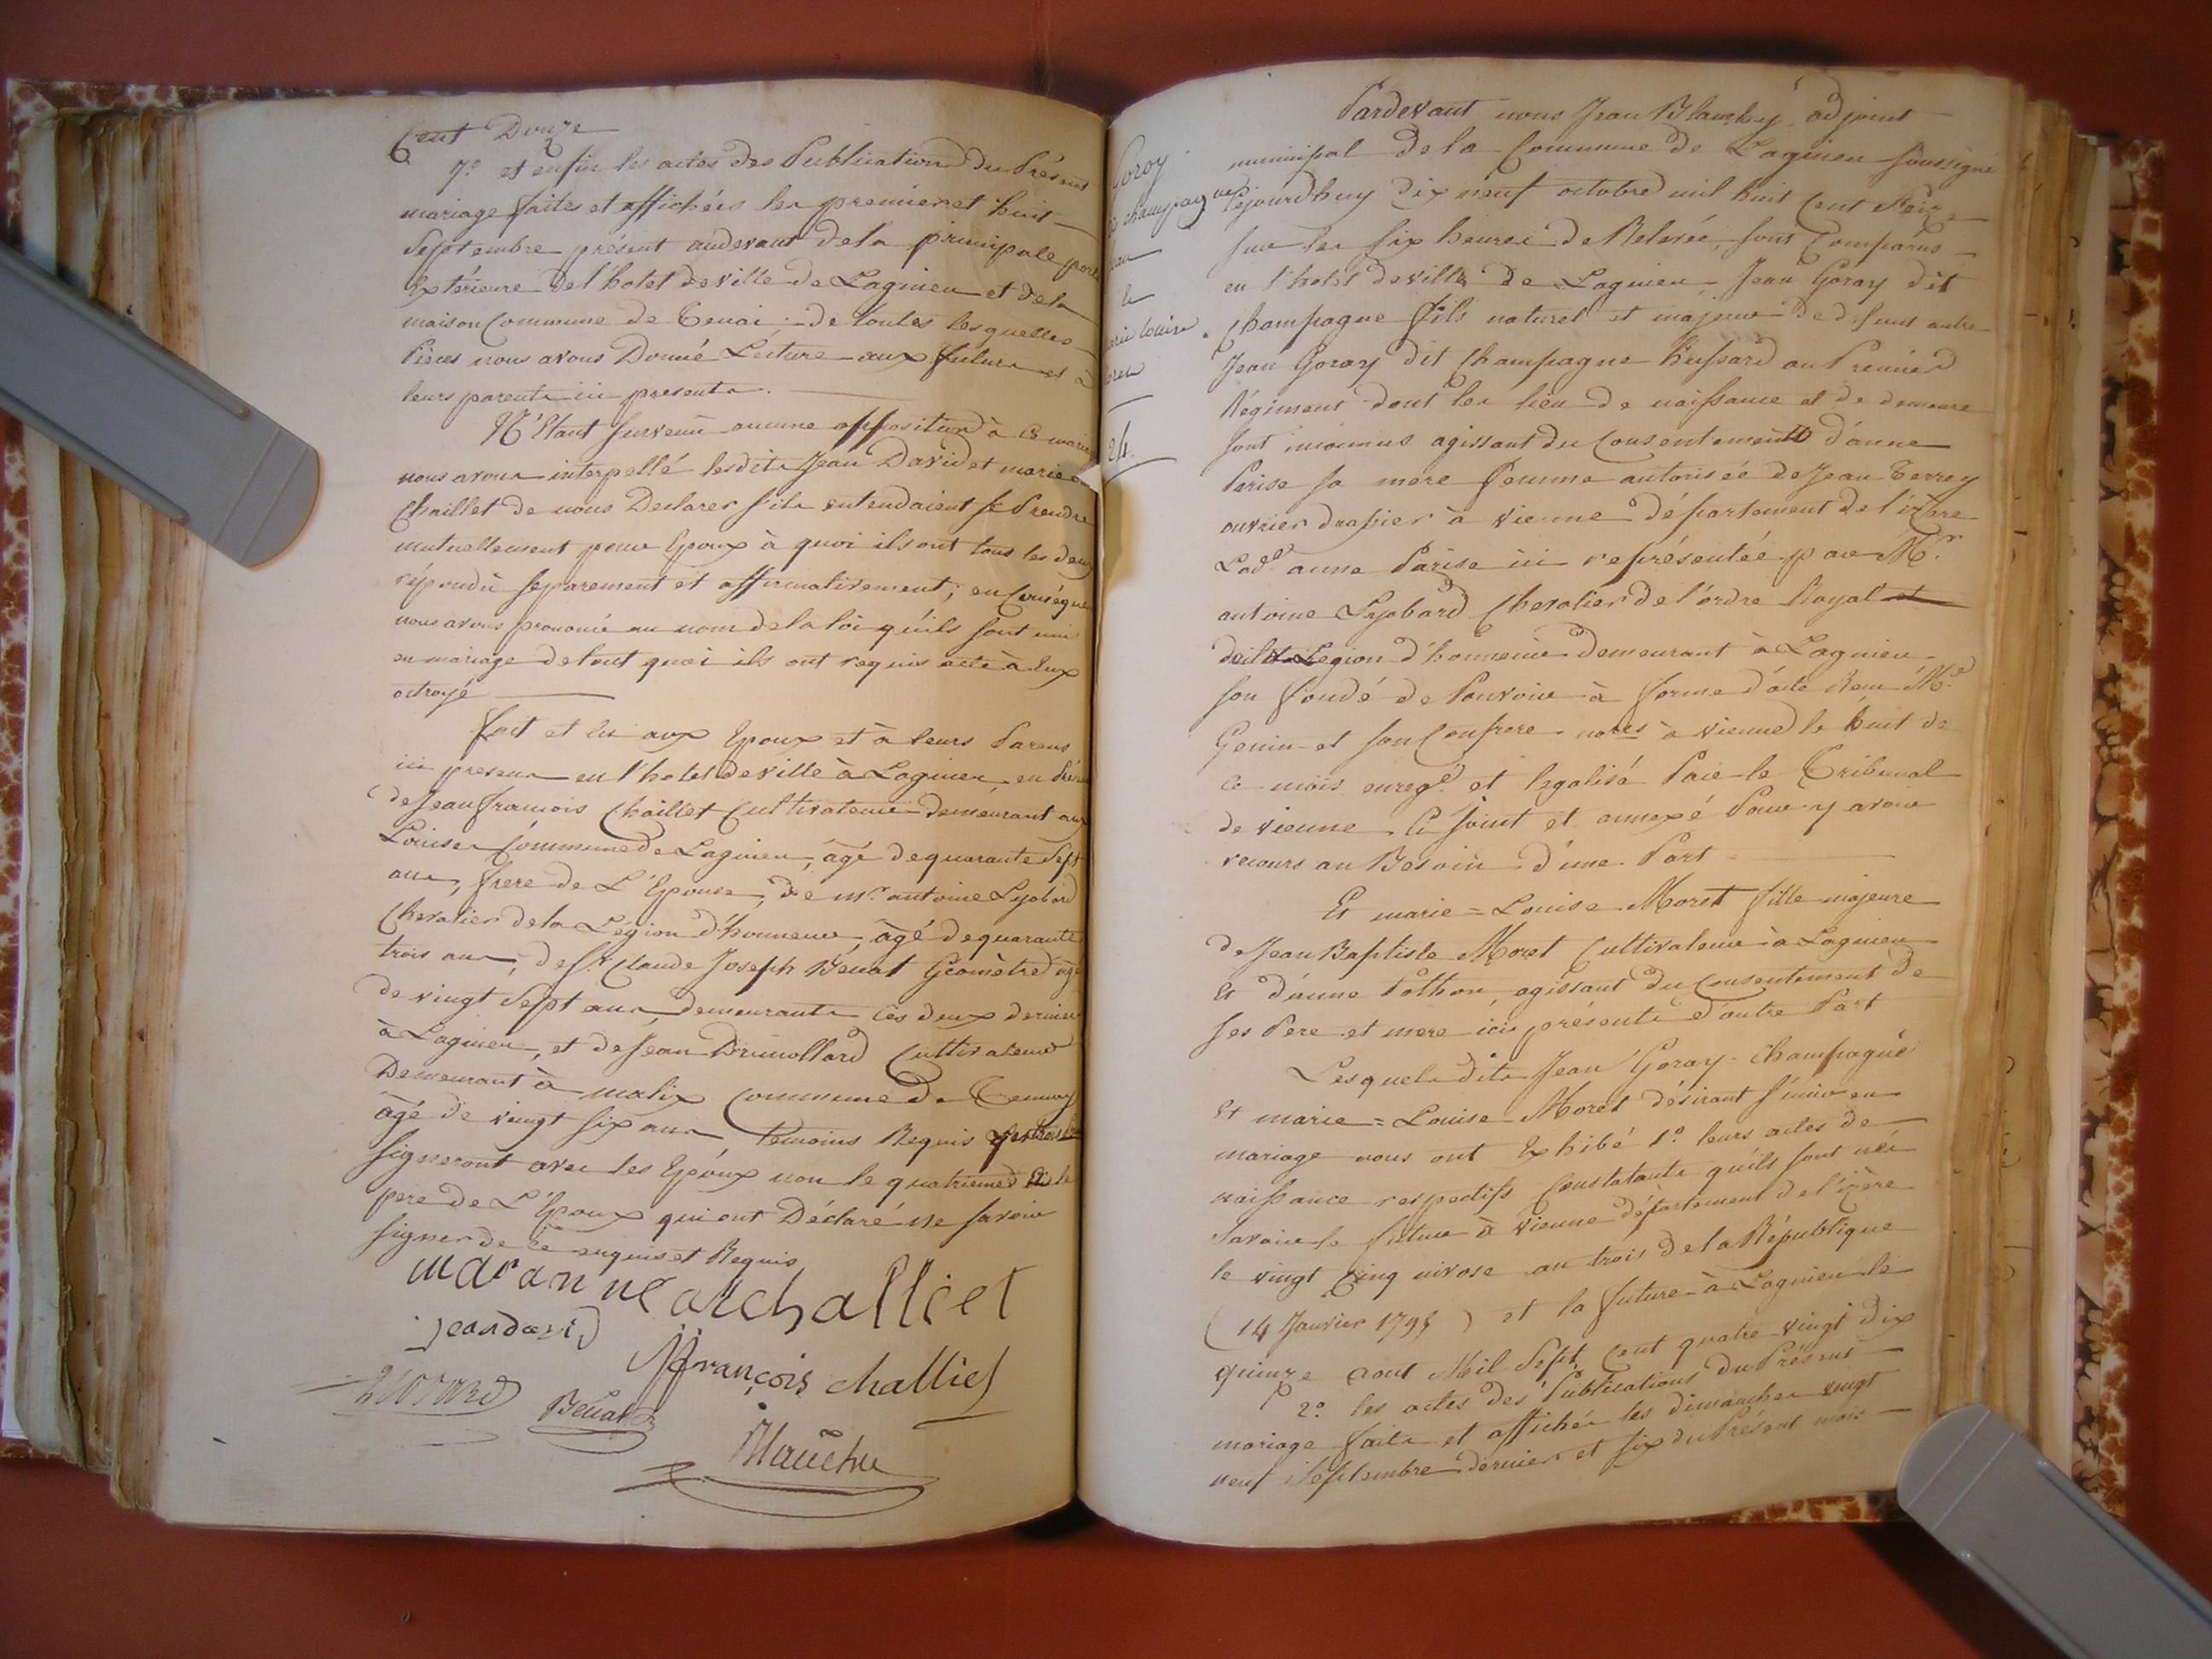 Cent Douze
7.º et enfin les actes des Publications du Présent
mariage faites et affichées les premier et huit
Septembre présent audevant de la principale porte
Extérieure de l'hotel de ville de Lagnieu et de la
maison Commune de Tenai: de toutes lesquelles
Pièces nous avons Donné Lecture aux futurs et à
leurs parents ici presents.
N'Etant survenu aucune opposition à ce mariage
nous avons interpellé lesdits Jean David et marie
Chaillet de nous Declarer s'ils entendaient se Prendre
mutuellement pour Epoux à quoi ils ont tous les deux
répondu separement et affirmativement; en Conséque
nous avons prononcé au nom de la loi qu'ils sont unis
en mariage de tout quoi ils ont requis acte à Eux
octroyé
fait et lu aux Epoux et à leurs Parens
ici presens en l'hotel de ville à Lagnieu en
de Jean françois Chaillet Cultivateur demeurant aux
Louises Commune de Lagnieu, âgé de quarante sept
ans, frere de L'Epouse, de mr. antoine Lyobard
Chevalier de la Légion d'honneur, âgé de quarante
trois ans, de Sr. Claude Joseph Benat Géomètre âgé
de vingt Sept ans, demeurants ces deux dernier
à Lagnieu, et de Jean Brunollard Cultivateur
Demeurant à malix Commune de Tenay
âgé de vingt six ans temoins Requis
signeront avec les Epoux non le quatrieme le
pere de L'Epoux qui ont Déclaré ne savoir
signer de ce enquis et Requis
marianne challiet
jean david
JJ françois challiet
Benat
Blanchy
Goroy
champagne
marie louise
24
Pardevant nous Jean Blanchy adjoint
municipal de la Commune de Lagnieu soussigne
cejourdhuy dix neuf octobre mil huit Cent Seize
sur les six heures de Relevée, sont Comparus
en l'hotel de ville de Lagnieu, Jean Goray dit
Champagne fils naturel et majeur de defunt autre
Jean Goray dit Champagne hussard au Premier
Régiment dont les lieu de naissance et de demeure
sont inconnus agissant du Consentement d'anne
Parise sa mere femme autorisée de Jean Terrey
ouvrier drapier à Vienne département de l'izère
Lad. anne Parise ici représentée par Mr.
antoine Lyobard Chevalier de l'ordre Royal et
de la Légion d'honneur demeurant à Lagnieu
son fondé de Pouvoir à forme d'acte Recu Me.
Genin et son Confrere nores à Vienne le huit de
ce mois enregé. et legalisé Par le Tribunal
de Vienne Ci Joint et annexé Pour y avoir
recours au Besoin d'une Part
Et marie = Louise Moret fille majeure
de Jean Baptiste Moret Cultivateur à Lagnieu
Et d'anne Pothon, agissant du Consentement de
ses Pere et mere ici présents d'autre Part
Lesquels dits Jean Goray-Champagne
Et marie = Louise Moret désirant s'unir en
mariage nous ont Exhibé 1.º leurs actes de
naissance respectifs Constatants qu'ils sont nés
Savoir le futur à Vienne département de l'izère
le vingt Cinq nivose an trois de la République
(14 Janvier 1795) et la future à Lagnieu le
quinze aout Mil Sept Cent quatre vingt dix
2.º les actes des Publications du Présent
mariage faits et affichés les dimanches vingt
neuf Septembre dernier et six du Présent mois